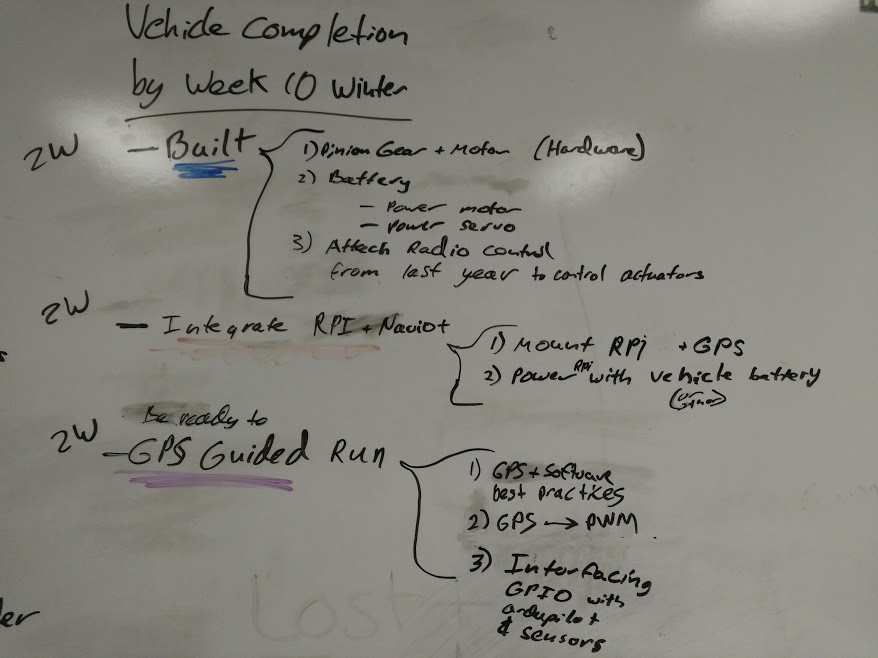 Vehicle Completion
by Week 10 Winter
2W — Built
1) Pinion Gear + Motor (Hardware)
2) Battery
— Power motor
— Power servo
3) Attach Radio control
from last year to control actuators
2W — Integrate RPI + Navio+
1) Mount RPi + GPS
2) Power RPi with vehicle battery
Be ready to
2W — GPS Guided Run
1) GPS + Software
best practices
2) GPS → PWM
3) Interfacing
GPIO with
ardupilot
& sensors
Lost